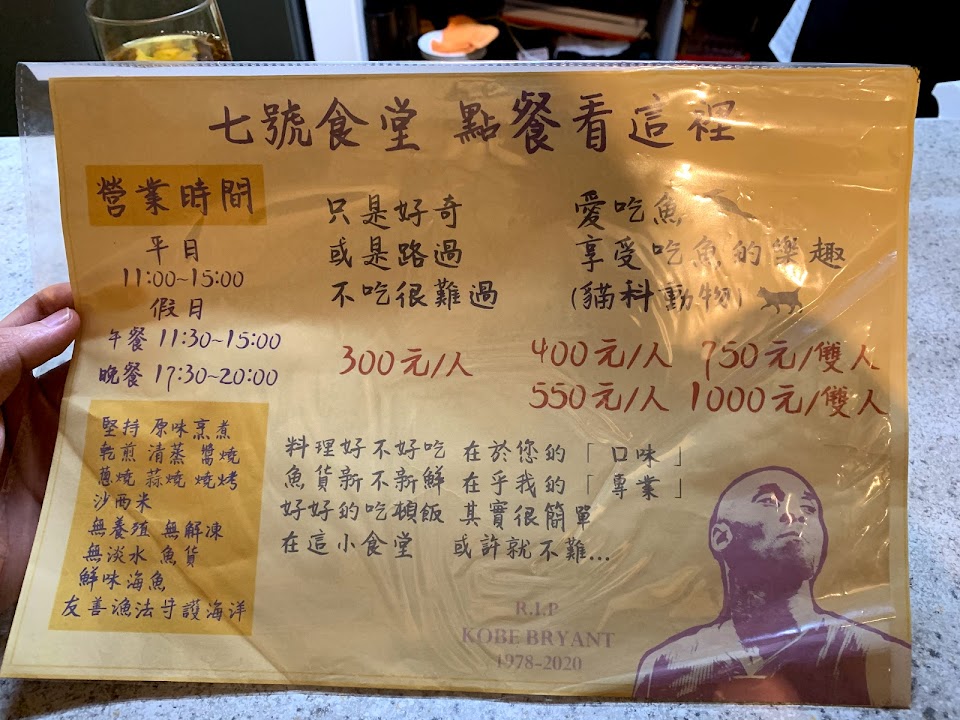 七號食堂 點餐看這裡
營業時間
平日
11:00~15:00
假日
午餐 11:30~15:00
晚餐 17:30~20:00
只是好奇
或是路過
不吃很難過
300元/人
愛吃魚
享受吃魚的樂趣
(貓科動物)
400元/人 750元/雙人
550元/人 1000元/雙人
堅持 原味烹煮
乾煎 清蒸 醬燒
蔥燒 蒜燒 燒烤
沙西米
無養殖 無解凍
無淡水 魚貨
鮮味海魚
友善漁法守護海洋
料理好不好吃 在於您的「口味」
魚貨新不新鮮 在乎我的「專業」
好好的吃頓飯 其實很簡單
在這小食堂 或許就不難...
R.I.P
KOBE BRYANT
1978-2020